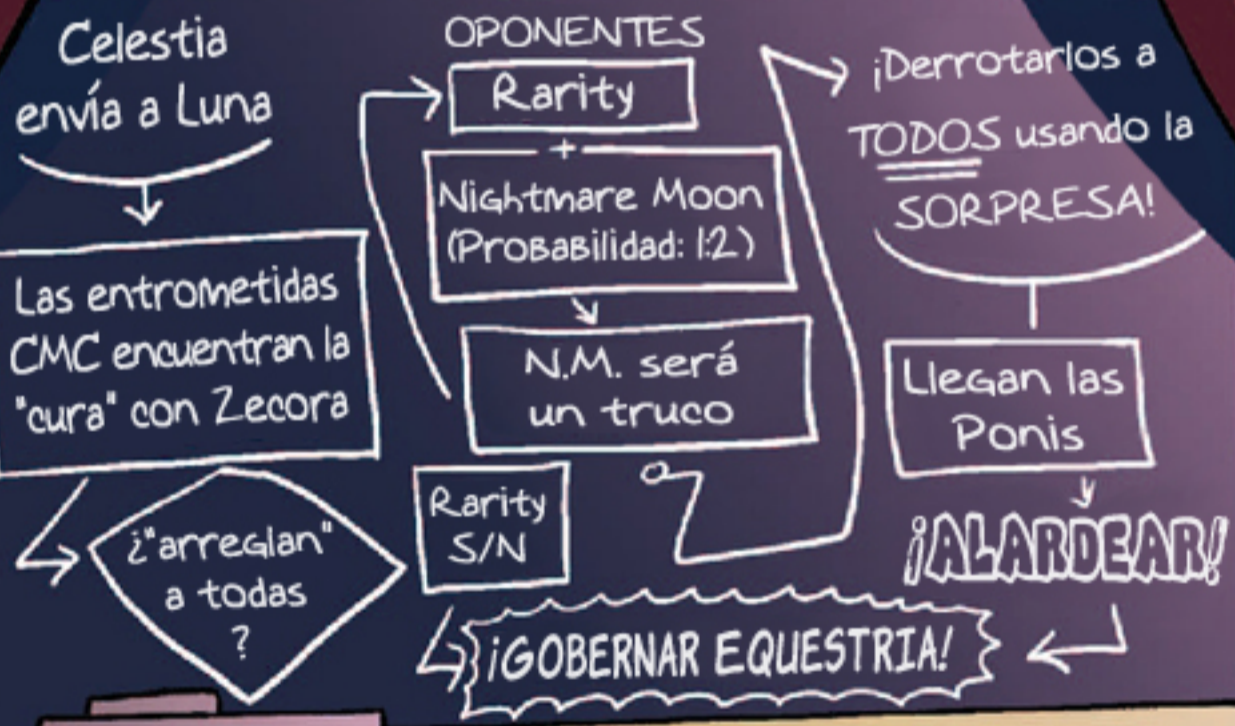 Celestia
envía a Luna
Las entrometidas
CMC encuentran la
"cura" con Zecora
¿"arreglan"
a todas
?
OPONENTES
Rarity
+
Nightmare Moon
(Probabilidad: 1:2)
N.M. será
un truco
Rarity
S/N
¡Derrotarlos a
TODOS usando la
SORPRESA!
Llegan las
Ponis
¡ALARDEAR!
¡GOBERNAR EQUESTRIA!